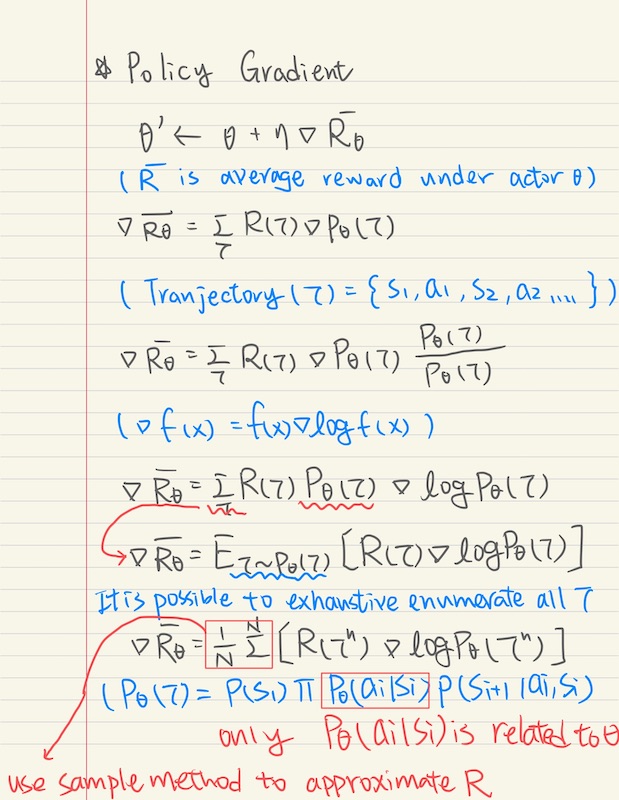 * Policy Gradient
θ' ← θ + η ∇ R̄θ
( R̄ is average reward under actor θ)
∇ R̄θ = Σ_τ R(τ) ∇ Pθ(τ)
( Tranjectory (τ) = { S1, a1, S2, a2 ,,,,, } )
∇ R̄θ = Σ_τ R(τ) ∇ Pθ(τ) Pθ(τ) / Pθ(τ)
( ∇ f(x) = f(x) ∇ log f(x) )
∇ R̄θ = Σ_τ R(τ) Pθ(τ) ∇ log Pθ(τ)
∇ R̄θ = E_τ~Pθ(τ) [ R(τ) ∇ log Pθ(τ) ]
It is possible to exhaustive enumerate all τ
∇ R̄θ = 1/N Σ^N [ R(τ^n) ∇ log Pθ(τ^n) ]
( Pθ(τ) = P(S1) π Pθ(ai|Si) P(Si+1 | ai, Si)
only Pθ(ai|Si) is related to θ
use sample method to approximate R